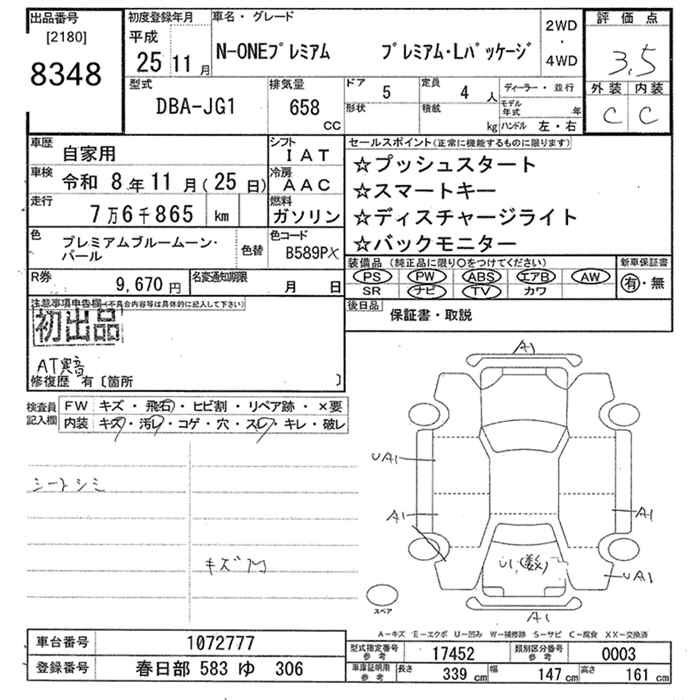 出品番号
[2180]
8348
初度登録年月
平成
25 11 月
車名・グレード
N-ONEプレミアム プレミアム・Lパッケージ
2WD
・
4WD
評価点
3.5
外装 内装
C C
型式
DBA-JG1
排気量
658
CC
ドア 5
形状
定員 4 人
積載 kg
ディーラー・並行
モデル年式 年
ハンドル 左・右
車歴 自家用
シフト
IAT
車検 令和 8年 11月(25日)
冷房
AAC
走行 7万6千865 km
燃料
ガソリン
色 プレミアムブルームーン・パール
色替
色コード
B589PX
R券 9,670円
名変通知期限 月 日
セールスポイント(正常に機能するものに限ります)
☆プッシュスタート
☆スマートキー
☆ディスチャージライト
☆バックモニター
装備品(純正品に限り○をつけてください)
PS PW ABS エアB AW
SR ナビ TV カワ
新車保証書
有・無
後日品
保証書・取説
注意事項申告欄(不具合内容等は具体的に記入して下さい)
初出品
AT異音
修復歴 有〔箇所 〕
検査員記入欄
FW キズ・飛石・ヒビ割・リペア跡・×要
内装 キズ・汚レ・コゲ・穴・スレ・キレ・破レ
シートシミ
A1
UA1
A1
A1
U1(数)
UA1
A1
スペア
A-キズ E-エクボ U-凹み W-補修跡 S-サビ C-腐食 XX-交換済
車台番号 1072777
登録番号 春日部 583 ゆ 306
型式指定番号
参考
17452
類別区分番号
参考
0003
車庫証明用
参考
長さ 339 cm 幅 147 cm 高さ 161 cm